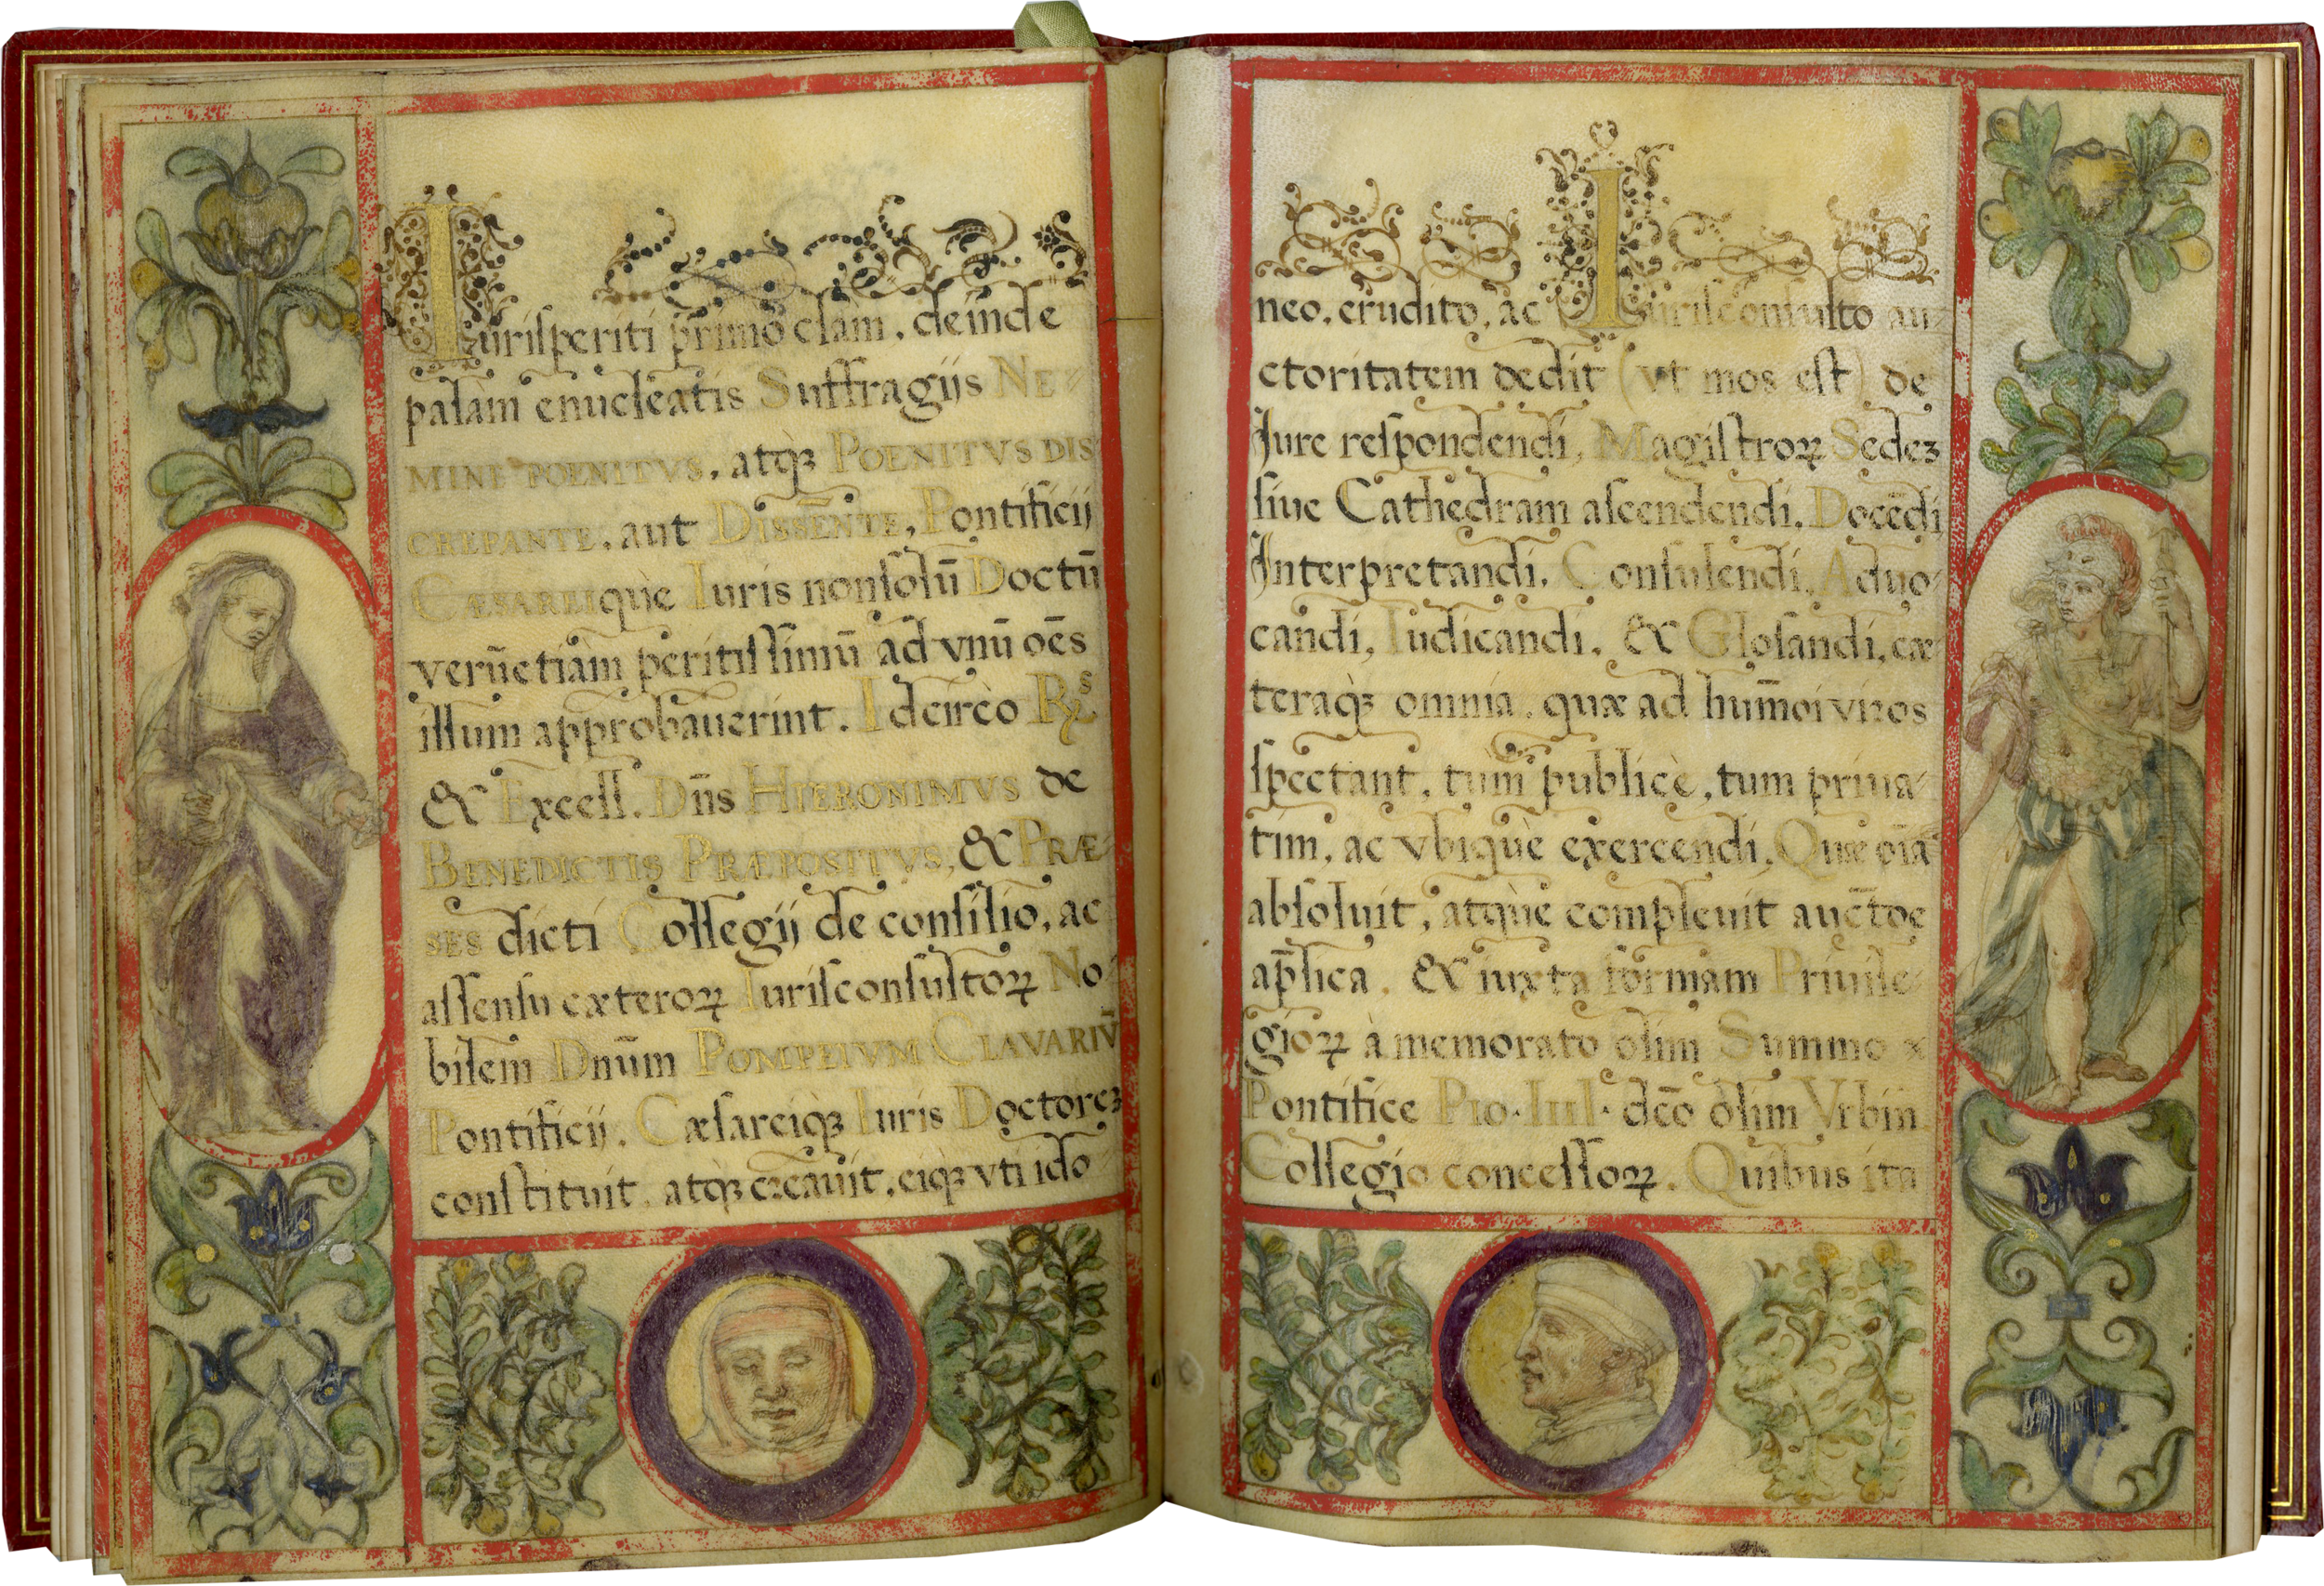 Iurisperiti primò clam, deinde
palam enucleatis Suffragijs NE-
MINE POENITVS, atq́ꝫ POENITVS DIS
CREPANTE, aut DISSENTE, Pontificij
CÆSAREIquè Iuris nonsolū Doctū
verūetiam peritissimū ad vnū oēs
illum approbauerint. Idcircò R.ˢ
& Excell. Dn̄s HIERONIMVS de
BENEDICTIS PRÆPOSITVS, & PRÆ-
SES dicti Collegij de consilio, ac
assensu cæteroꝝ Iurisconsultoꝝ No-
bilem Dnūm POMPEIVM CLAVARIV̄
Pontificij, Cæsareiq́ꝫ Iuris Doctoreꝫ
constituit, atq́ꝫ creauit, eiq́ꝫ vti ido-
neo, erudito, ac Iurisconsulto au-
ctoritatem dedit (vt mos est) de
Iure respondendi, Magistroꝝ Sedeꝫ
siue Cathedram ascendendi, Docēdi
Interpretandi, Consulendi, Aduo-
candi, Iudicandi, & Glosandi, cæ-
teraq́ꝫ omnia, quæ ad hum̄oi viros
spectant, tum publicè, tum priua-
tim, ac vbiquè exercendi. Quæ oīa
absoluit, atquè compleuit auct̄oe
ap̄lica, & iuxta formam Priuile-
gioꝝ à memorato olim Summo
Pontifice PIO·IIII· dc̄o olim Vrbin̄
Collegio concessoꝝ. Quibus ita